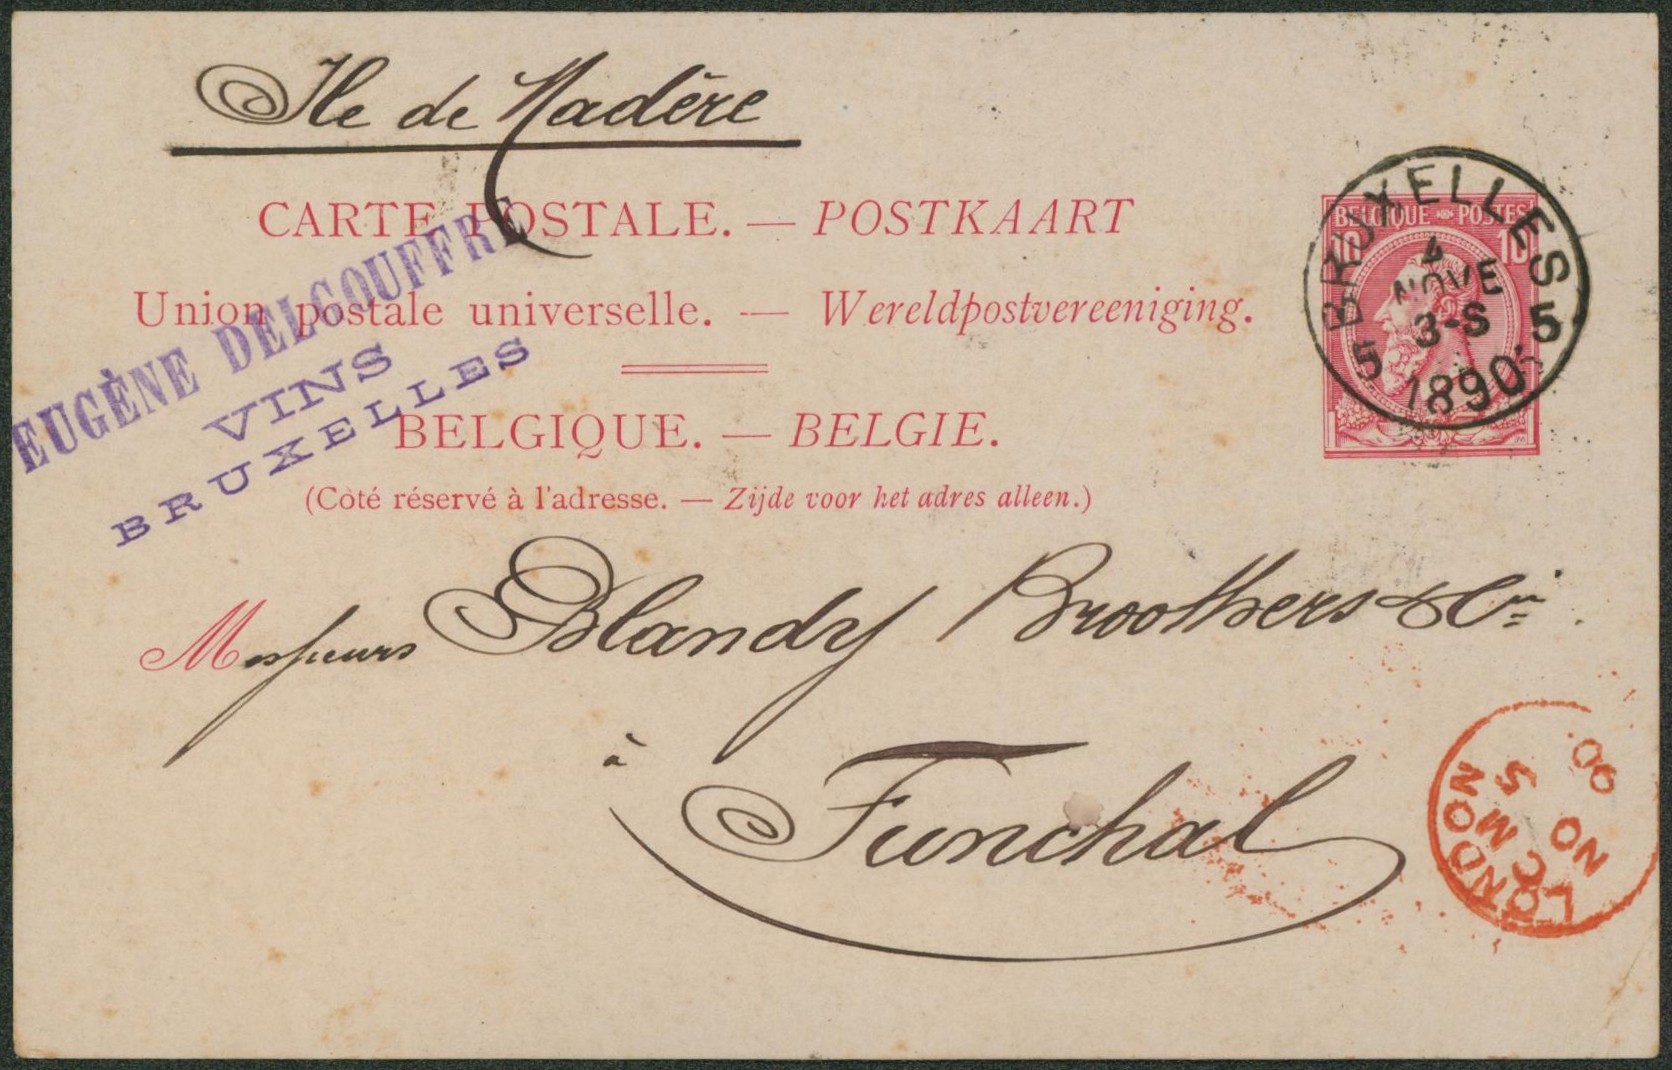 Ile de Madère
CARTE POSTALE. — POSTKAART
Union postale universelle. — Wereldpostvereeniging.
BELGIQUE. — BELGIE.
(Côté réservé à l'adresse. — Zijde voor het adres alleen.)
EUGÈNE DELCOUFFRE
VINS
BRUXELLES
BELGIQUE POSTES
10 10
BRUXELLES
4
NOVE
3-S
5 5
1890
Messieurs Blandy Broothers & Cie.
à
Funchal
LONDON
C
M 5
NO
90